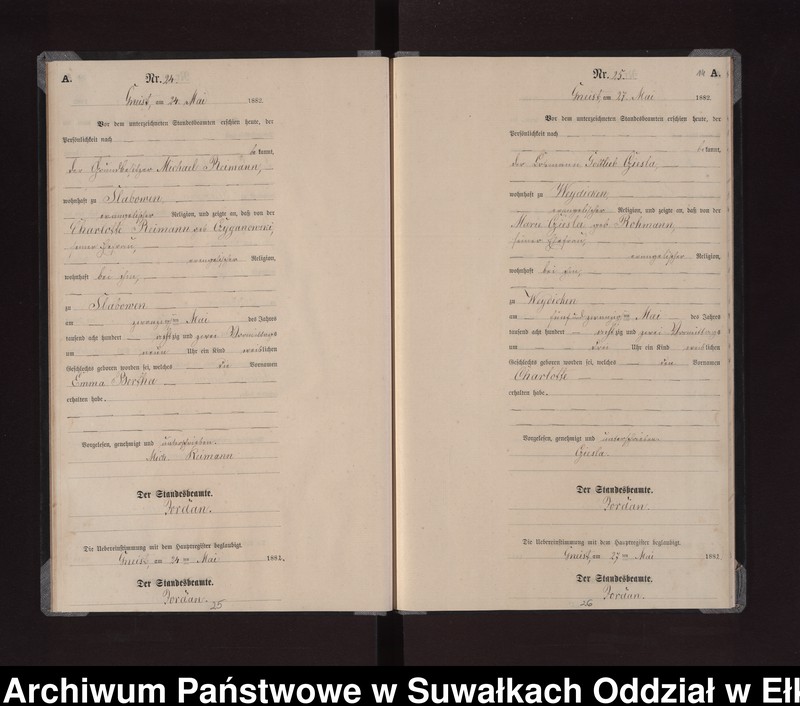 A.
Nr. 24
Gneist, am 24. Mai 1882.
Vor dem unterzeichneten Standesbeamten erschien heute, der
Persönlichkeit nach
be kannt,
der Grundbesitzer Michael Reimann,
wohnhaft zu Slabowen
evangelischer Religion, und zeigte an, daß von der
Charlotte Reimann geb Czyganowski,
seiner Ehefrau,
evangelischer Religion,
wohnhaft bei ihm,
zu Slabowen
am zwanzigten Mai des Jahres
tausend acht hundert achtzig und zwei Vormittags
um neun Uhr ein Kind weiblichen
Geschlechts geboren worden sei, welches die Vornamen
Emma Bertha
erhalten habe.
Vorgelesen, genehmigt und unterschrieben.
Mich. Reimann
Der Standesbeamte.
Jordan.
Die Uebereinstimmung mit dem Hauptregister beglaubigt.
Gneist, am 24 ten Mai 1882.
Der Standesbeamte.
Jordan.
25
A.
Nr. 25.
Gneist am 27. Mai 1882.
Vor dem unterzeichneten Standesbeamten erschien heute, der
Persönlichkeit nach
be kannt,
der Losmann Gottlieb Giesla,
wohnhaft zu Weydicken,
evangelischer Religion, und zeigte an, daß von der
Marie Giesla geb Rohmann,
seiner Ehefrau,
evangelischer Religion,
wohnhaft bei ihm,
zu Weydicken
am fünfundzwanzigten Mai des Jahres
tausend acht hundert achtzig und zwei Vormittags
um drei Uhr ein Kind weiblichen
Geschlechts geboren worden sei, welches den Vornamen
Charlotte
erhalten habe.
Vorgelesen, genehmigt und unterschrieben
Giesla.
Der Standesbeamte.
Jordan.
Die Uebereinstimmung mit dem Hauptregister beglaubigt.
Gneist, am 27 ten Mai 1882
Der Standesbeamte.
Jordan.
26
Archiwum Państwowe w Suwałkach Oddział w Ełk